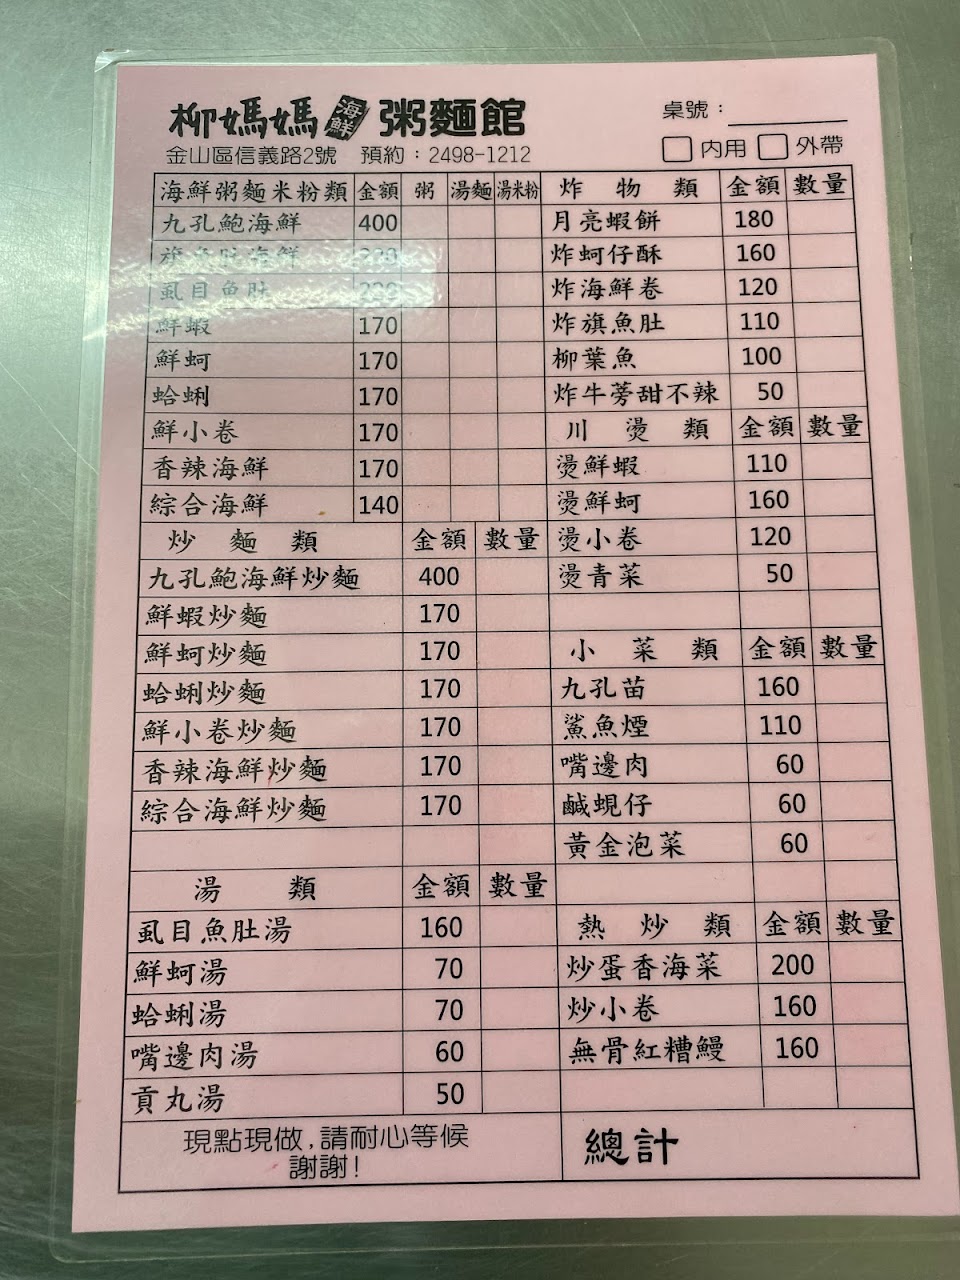 柳媽媽海鮮粥麵館
桌號：
金山區信義路2號 預約：2498-1212
內用 外帶
海鮮粥麵米粉類 金額 粥 湯麵 湯米粉
九孔鮑海鮮 400
旗魚肚海鮮
虱目魚肚
鮮蝦 170
鮮蚵 170
蛤蜊 170
鮮小卷 170
香辣海鮮 170
綜合海鮮 140
炒麵類 金額 數量
九孔鮑海鮮炒麵 400
鮮蝦炒麵 170
鮮蚵炒麵 170
蛤蜊炒麵 170
鮮小卷炒麵 170
香辣海鮮炒麵 170
綜合海鮮炒麵 170
湯類 金額 數量
虱目魚肚湯 160
鮮蚵湯 70
蛤蜊湯 70
嘴邊肉湯 60
貢丸湯 50
炸物類 金額 數量
月亮蝦餅 180
炸蚵仔酥 160
炸海鮮卷 120
炸旗魚肚 110
柳葉魚 100
炸牛蒡甜不辣 50
川燙類 金額 數量
燙鮮蝦 110
燙鮮蚵 160
燙小卷 120
燙青菜 50
小菜類 金額 數量
九孔苗 160
鯊魚煙 110
嘴邊肉 60
鹹蜆仔 60
黃金泡菜 60
熱炒類 金額 數量
炒蛋香海菜 200
炒小卷 160
無骨紅糟鰻 160
現點現做,請耐心等候
謝謝!
總計